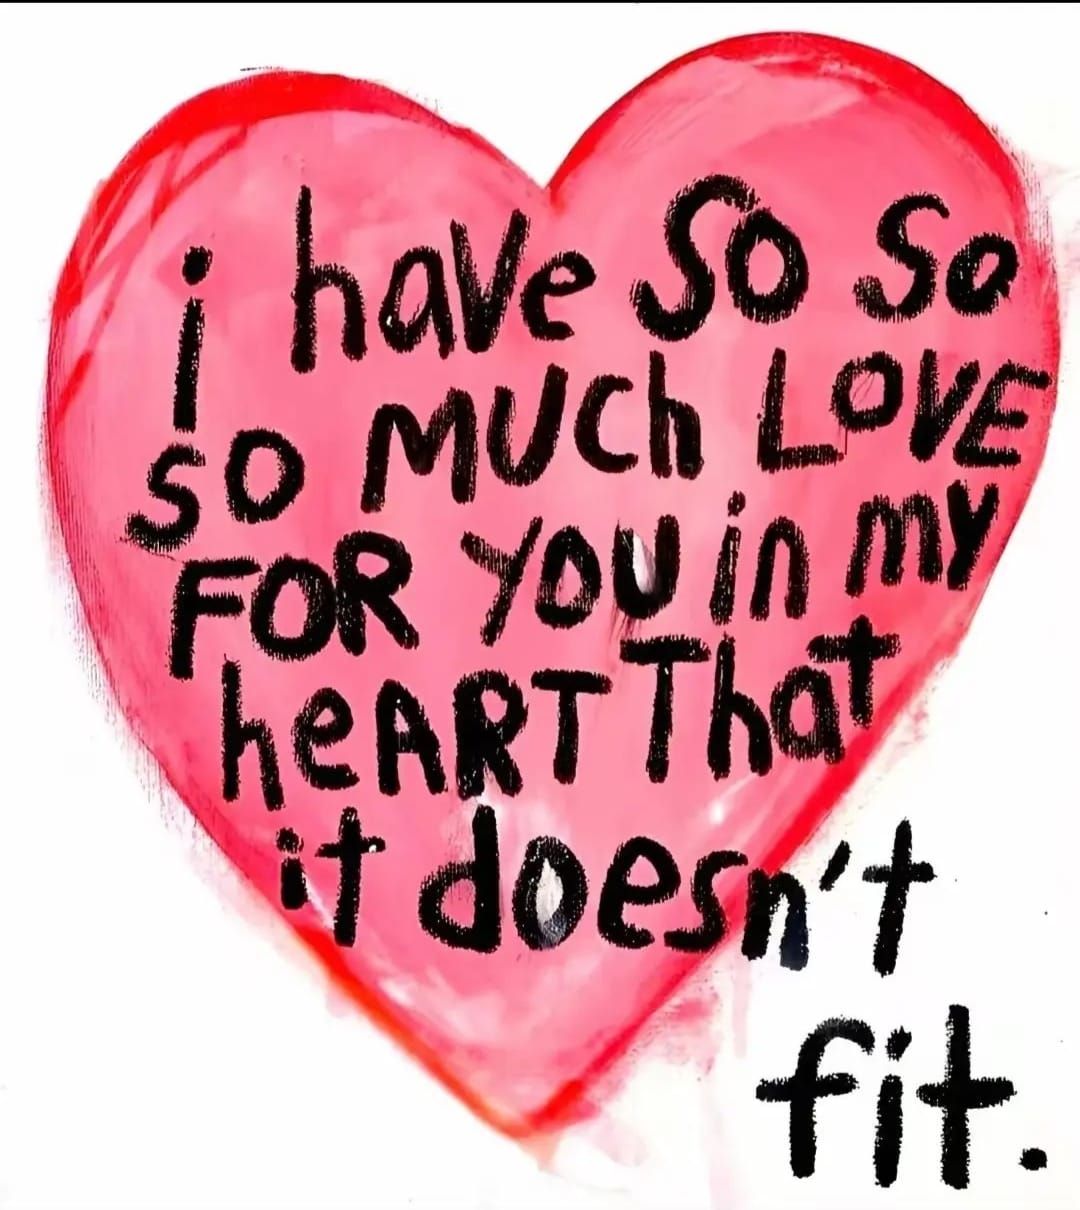 i have SO So
so MUCh LOVE
FOR YOU in my
heART That
it doesn't
fit.